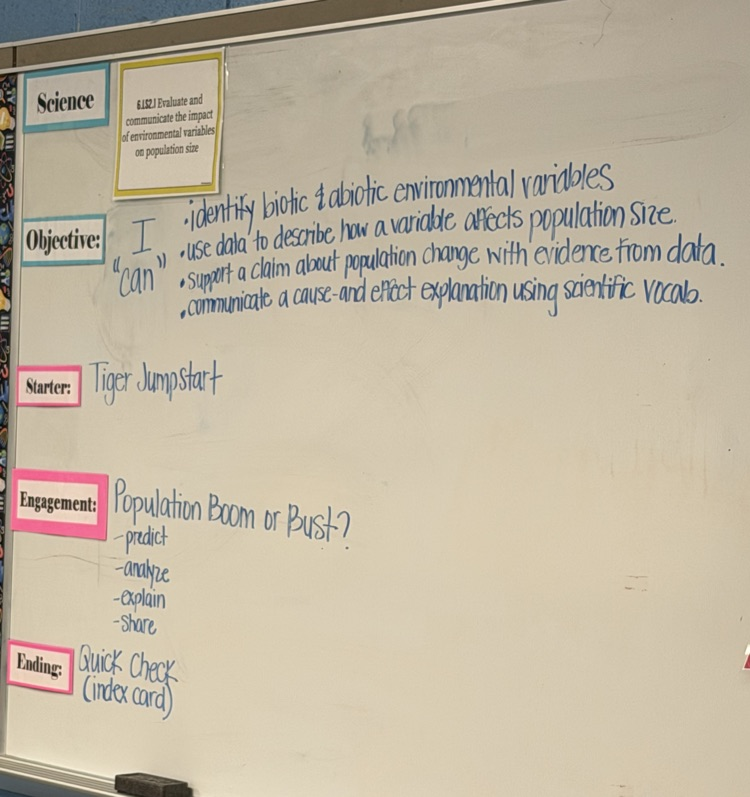 Science
6.LS2.1 Evaluate and
communicate the impact
of environmental variables
on population size
Objective:
I
"can"
•identify biotic & abiotic environmental variables
•use data to describe how a variable affects population size.
•support a claim about population change with evidence from data.
•communicate a cause-and effect explanation using scientific vocab.
Starter:
Tiger Jumpstart
Engagement:
Population Boom or Bust?
-predict
-analyze
-explain
-share
Ending:
Quick Check
(index card)